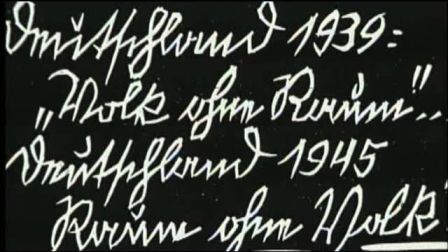 Deutschland 1939:
„Volk ohne Raum"..
Deutschland 1945
Raum ohne Volk